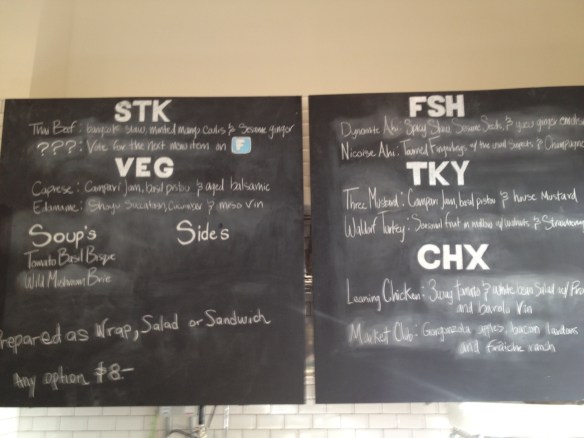 STK
Thai Beef: bangkok slaw, minted mango coulis & Sesame ginger
???: Vote for the next menu item on F
VEG
Caprese: Campari Jam, basil pistou & aged balsamic
Edamame: Shoyu Succotash, Cucumber & miso vin
Soup's
Side's
Tomato Basil Bisque
Wild Mushroom Brie
Prepared as Wrap, Salad or Sandwich
Any option $8-
FSH
Dynamite Ahi: Spicy Slaw, Sesame Seeds, & yuzu ginger
Nicoise Ahi: Tanned Fingerlings w/ the usual Suspects & Champagne
TKY
Three Mustard: Campari Jam, basil pistou & house Mustard
Waldorf Turkey: Seasonal fruit in walnuts & Strawberry
CHX
Leaning Chicken: 3way tomato & white bean Salad w/
and barolo Vin
Market Club: Gorgonzola apples, bacon lardons
and fraiche ranch